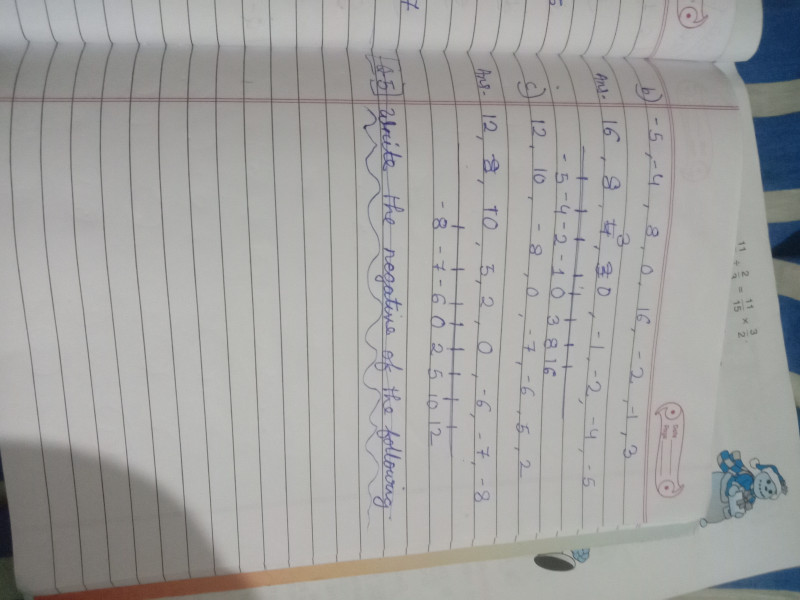 b) -5, -4, 8, 0, 16, -2, -1, 3
Ans- 16, 8, 3, 0, -1, -2, -4, -5
-5 -4 -2 -1 0 3 8 16
c) 12, 10, -8, 0, -7, -6, 5, 2
Ans- 12, 10, 5, 2, 0, -6, -7, -8
-8 -7 -6 0 2 5 10 12
Q5 Write the negative of the following-
Date
Page
11/ + 2/ = 11/15 × 3/2
7